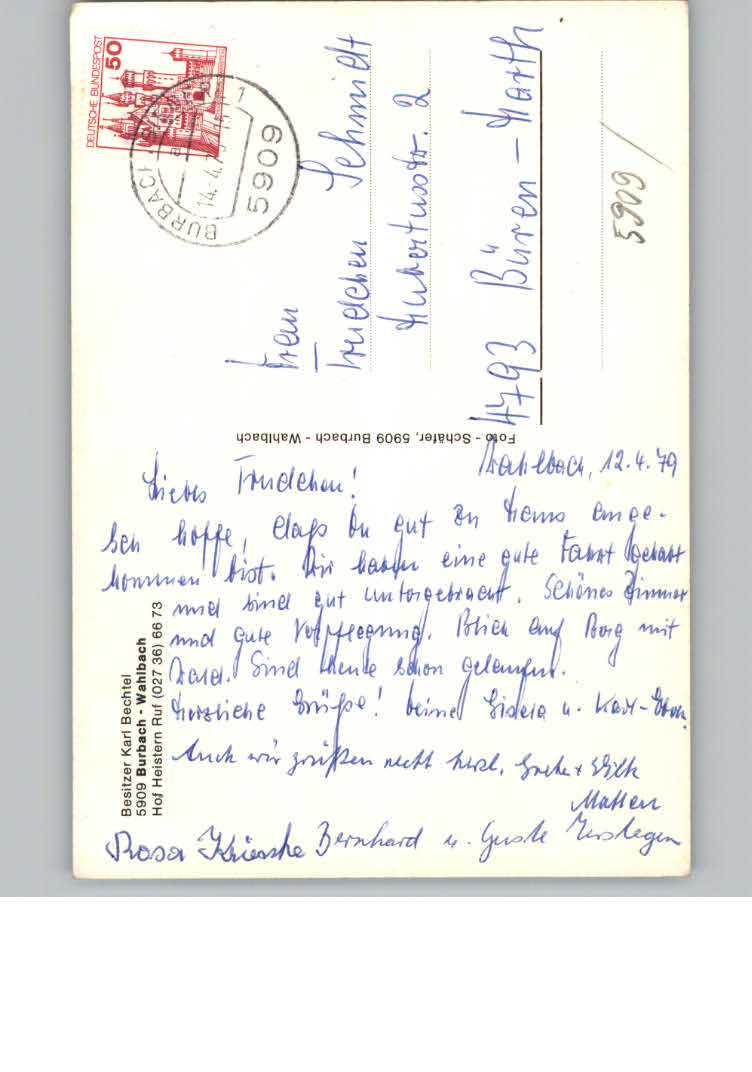 DEUTSCHE BUNDESPOST
50
BURBACH
14.4.79
5909
Frau
Trudchen Schmidt
Hubertusstr. 2
4793 Büren - Harth
5909
Foto - Schäfer, 5909 Burbach - Wahlbach
Besitzer Karl Bechtel
5909 Burbach - Wahlbach
Hof Heistern Ruf (027 36) 66 73
Wahlbach, 12.4.79
Liebes Trudchen!
Ich hoffe, daß Du gut zu Haus ange-
kommen bist. Wir haben eine gute Fahrt gehabt
und sind gut untergebracht. Schönes Zimmer
und gute Verpflegung. Blick auf Berg mit
Wald. Sind heute schon gelaufen.
Herzliche Grüße! Deine Gisela u. Karl-
Auch wir grüßen recht herzl. Grete + Willi
Rosa Bernhard u. Guste